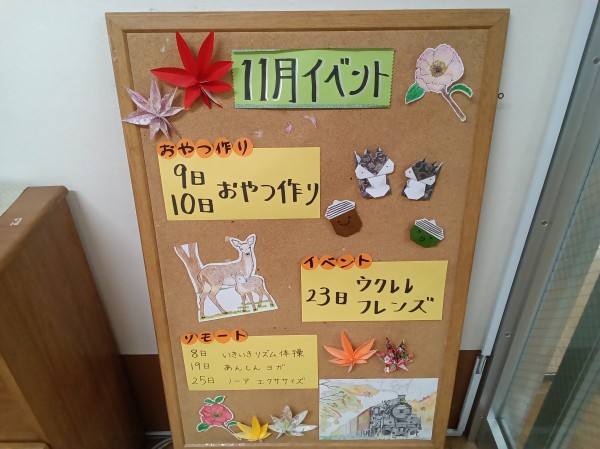 11月イベント
おやつ作り
9日
10日 おやつ作り
イベント
23日 ウクレレ
フレンズ
リモート
8日 いきいきリズム体操
19日 あんしんヨガ
25日 ノーア エクササイズ